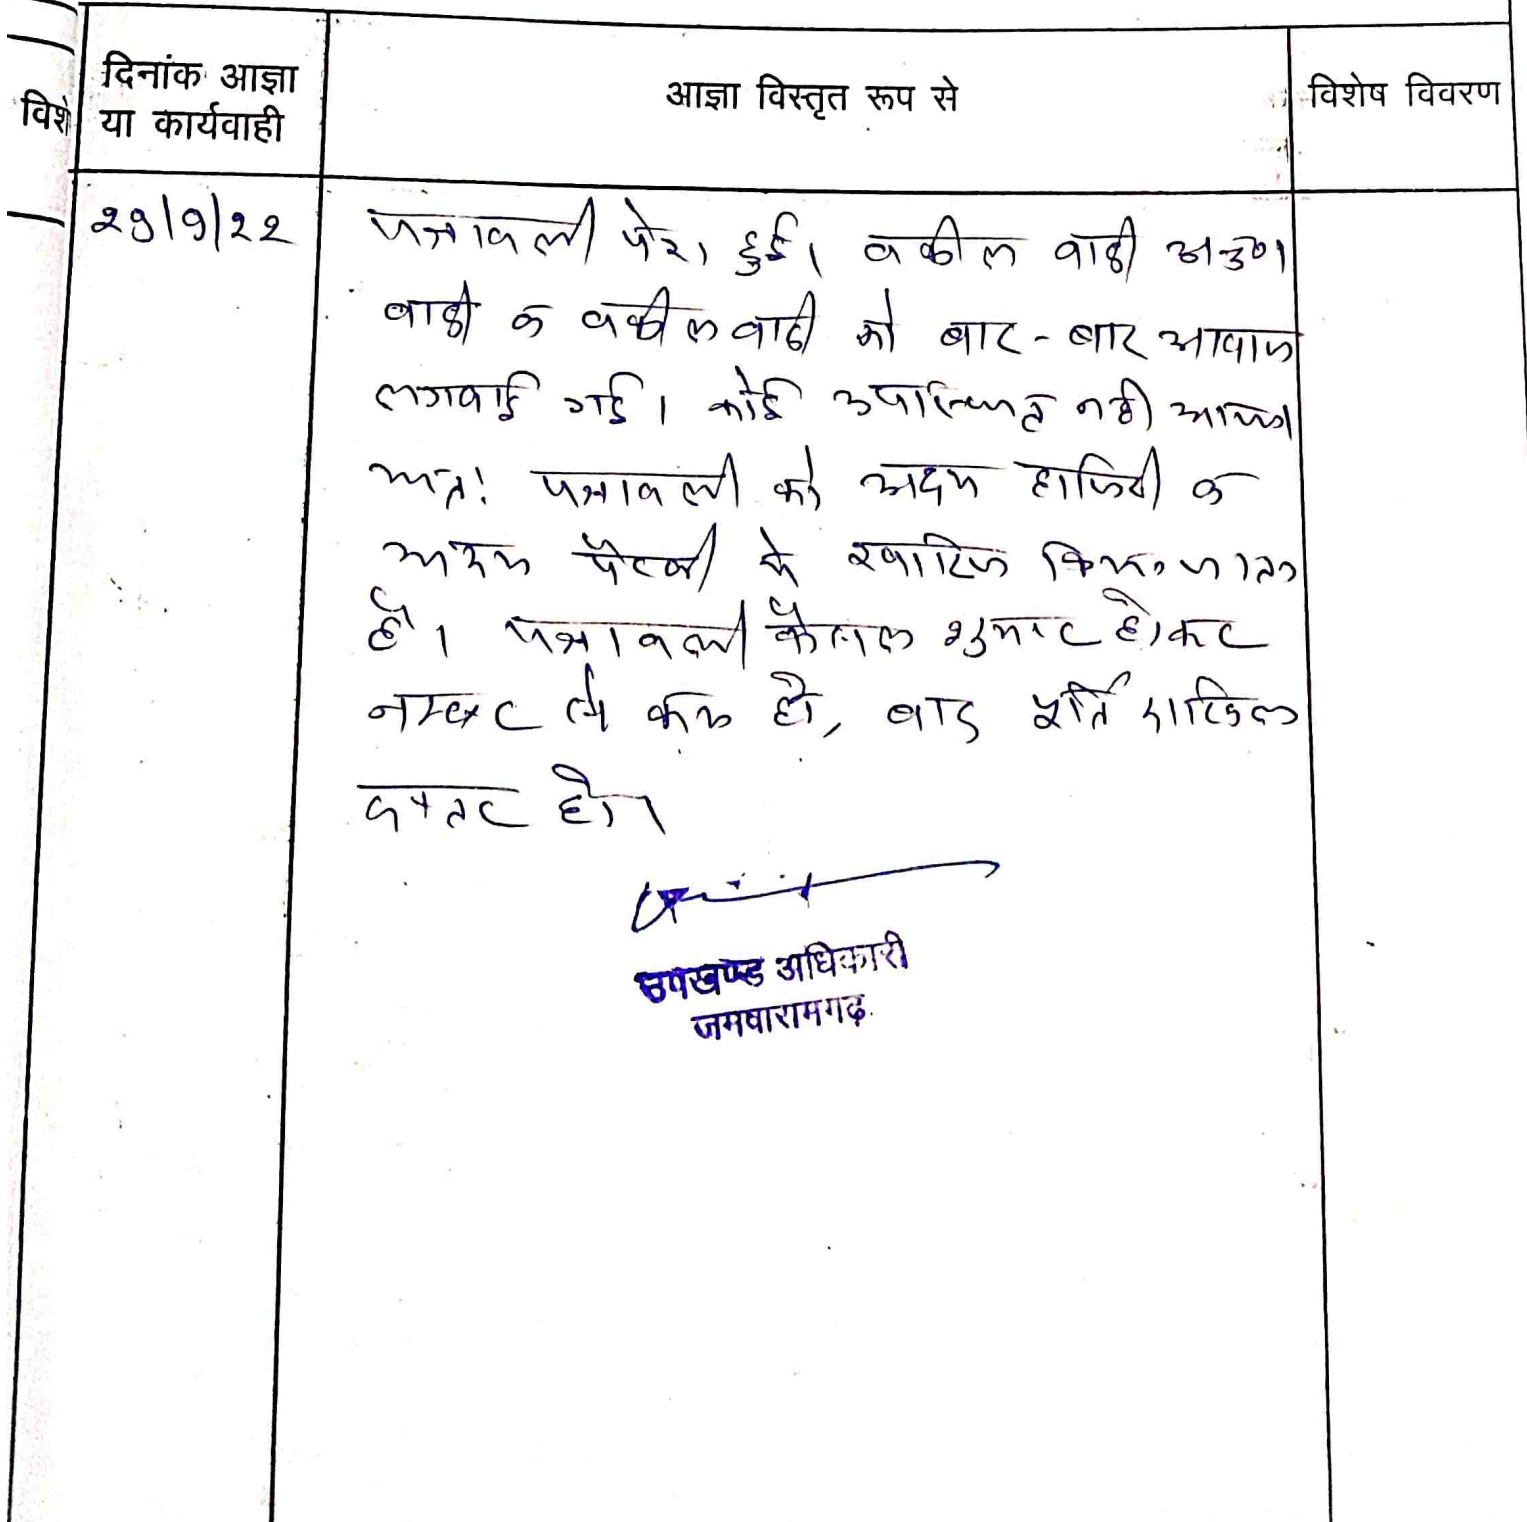 दिनांक आज्ञा
या कार्यवाही
आज्ञा विस्तृत रूप से
विशेष विवरण
विशे
29/9/22
पत्रावली पेश हुई। वकील वादी अनु०।
वादी व वकील वादी को बार-बार आवाज
लगवाई गई। कोई उपस्थित नही आया।
अतः पत्रावली को अदम हाजिरी व
अदम पैरवी मे खारिज किया जाता
है। पत्रावली फैसल शुमार होकर
नम्बर से कम हो, बाद पूर्ति दाखिल
दफ्तर हो।
उपखण्ड अधिकारी
जमवारामगढ़